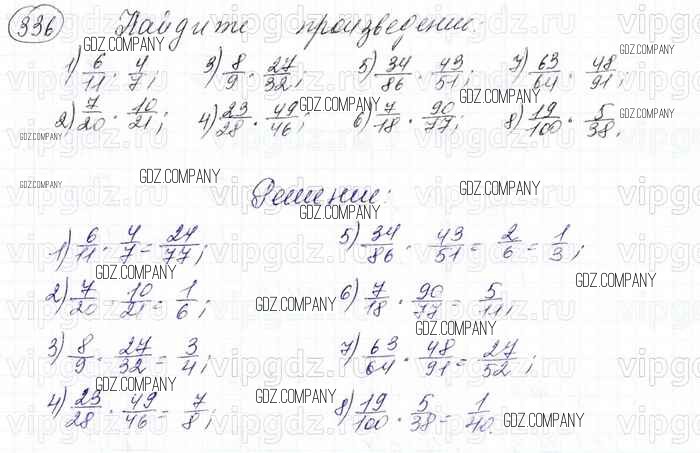 336 Найдите произведение:
1) 6/11 · 4/7; 3) 8/9 · 27/32; 5) 34/86 · 43/51; 7) 63/64 · 48/91;
2) 7/20 · 10/21; 4) 23/28 · 49/46; 6) 7/18 · 90/77; 8) 19/100 · 5/38.
Решение:
1) 6/11 · 4/7 = 24/77; 5) 34/86 · 43/51 = 2/6 = 1/3;
2) 7/20 · 10/21 = 1/6; 6) 7/18 · 90/77 = 5/11;
3) 8/9 · 27/32 = 3/4; 7) 63/64 · 48/91 = 27/52;
4) 23/28 · 49/46 = 7/8; 8) 19/100 · 5/38 = 1/40.
GDZ.COMPANY
vipgdz.ru